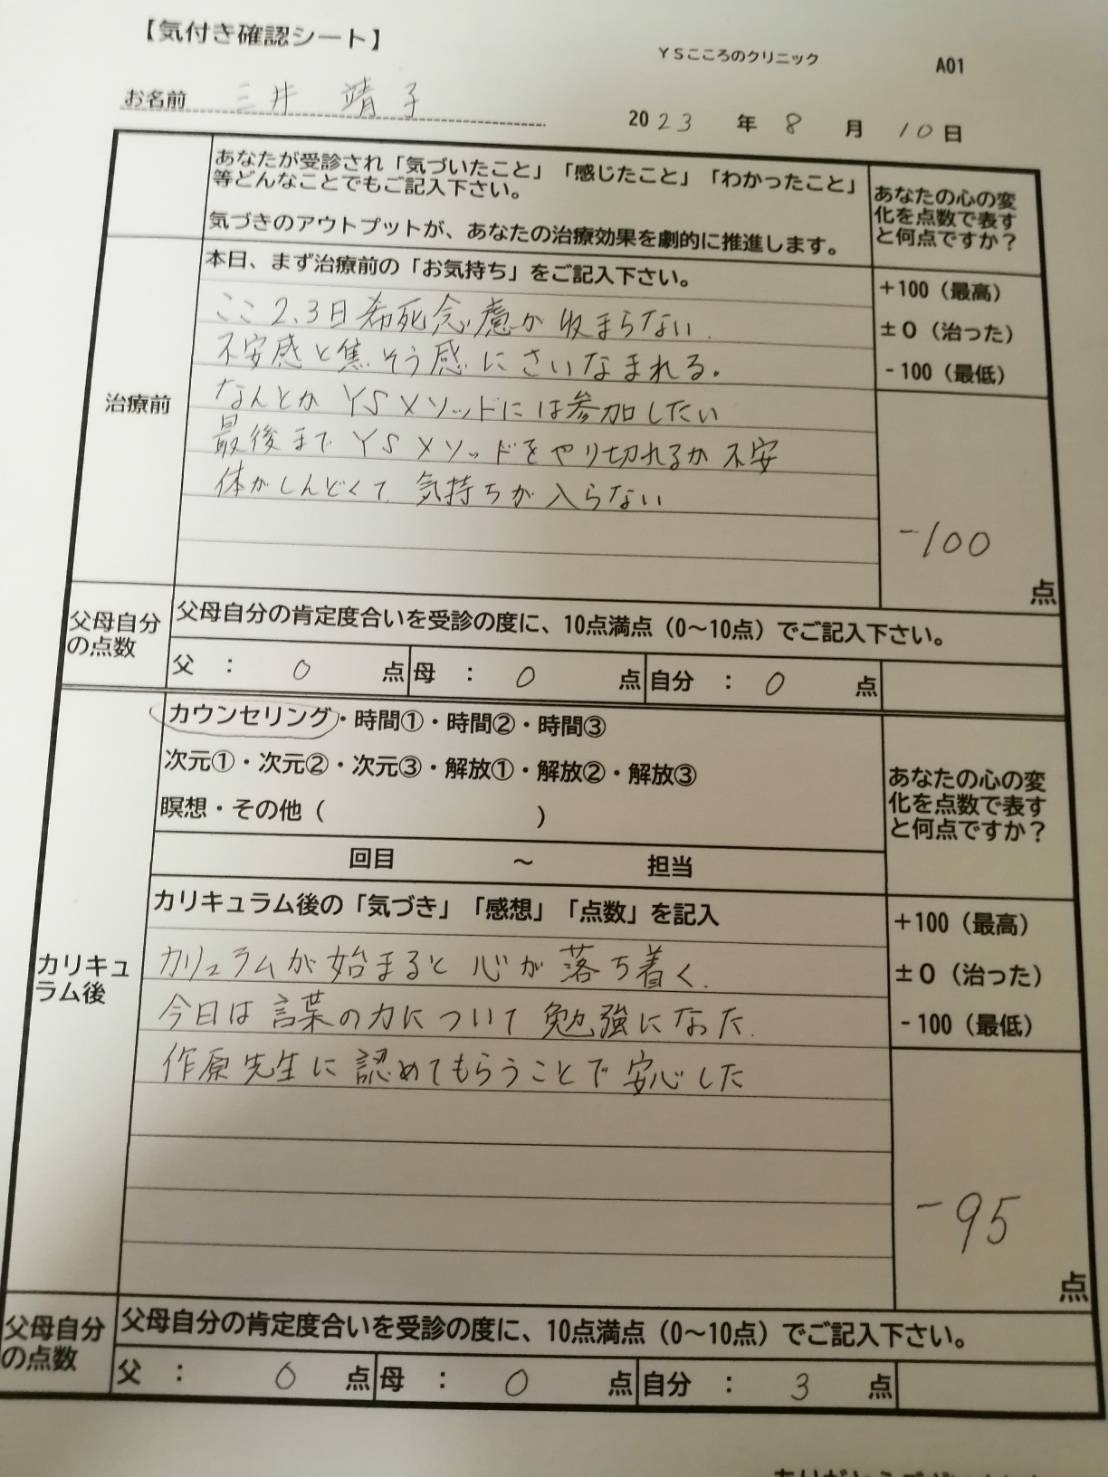 【気付き確認シート】
YSこころのクリニック
A01
お名前 三井 靖子
2023年 8月 10日
あなたが受診され「気づいたこと」「感じたこと」「わかったこと」
等どんなことでもご記入下さい。
気づきのアウトプットが、あなたの治療効果を劇的に推進します。
あなたの心の変
化を点数で表す
と何点ですか？
治療前
本日、まず治療前の「お気持ち」をご記入下さい。
ここ2、3日希死念慮が収まらない.
不安感と焦そう感にさいなまれる。
なんとかYSメソッドには参加したい
最後までYSメソッドをやり切れるか不安
体がしんどくて、気持ちが入らない
+100（最高）
±0（治った）
-100（最低）
-100
点
父母自分
の点数
父母自分の肯定度合いを受診の度に、10点満点（0～10点）でご記入下さい。
父 ： 0 点 母 ： 0 点 自分 ： 0 点
カリキュ
ラム後
カウンセリング・時間①・時間②・時間③
次元①・次元②・次元③・解放①・解放②・解放③
瞑想・その他（ ）
回目 ～ 担当
あなたの心の変
化を点数で表す
と何点ですか？
カリキュラム後の「気づき」「感想」「点数」を記入
カリュラムが始まると心が落ち着く.
今日は言葉の力について勉強になった.
作原先生に認めてもらうことで安心した
+100（最高）
±0（治った）
-100（最低）
-95
点
父母自分
の点数
父母自分の肯定度合いを受診の度に、10点満点（0～10点）でご記入下さい。
父 ： 0 点 母 ： 0 点 自分 ： 3 点